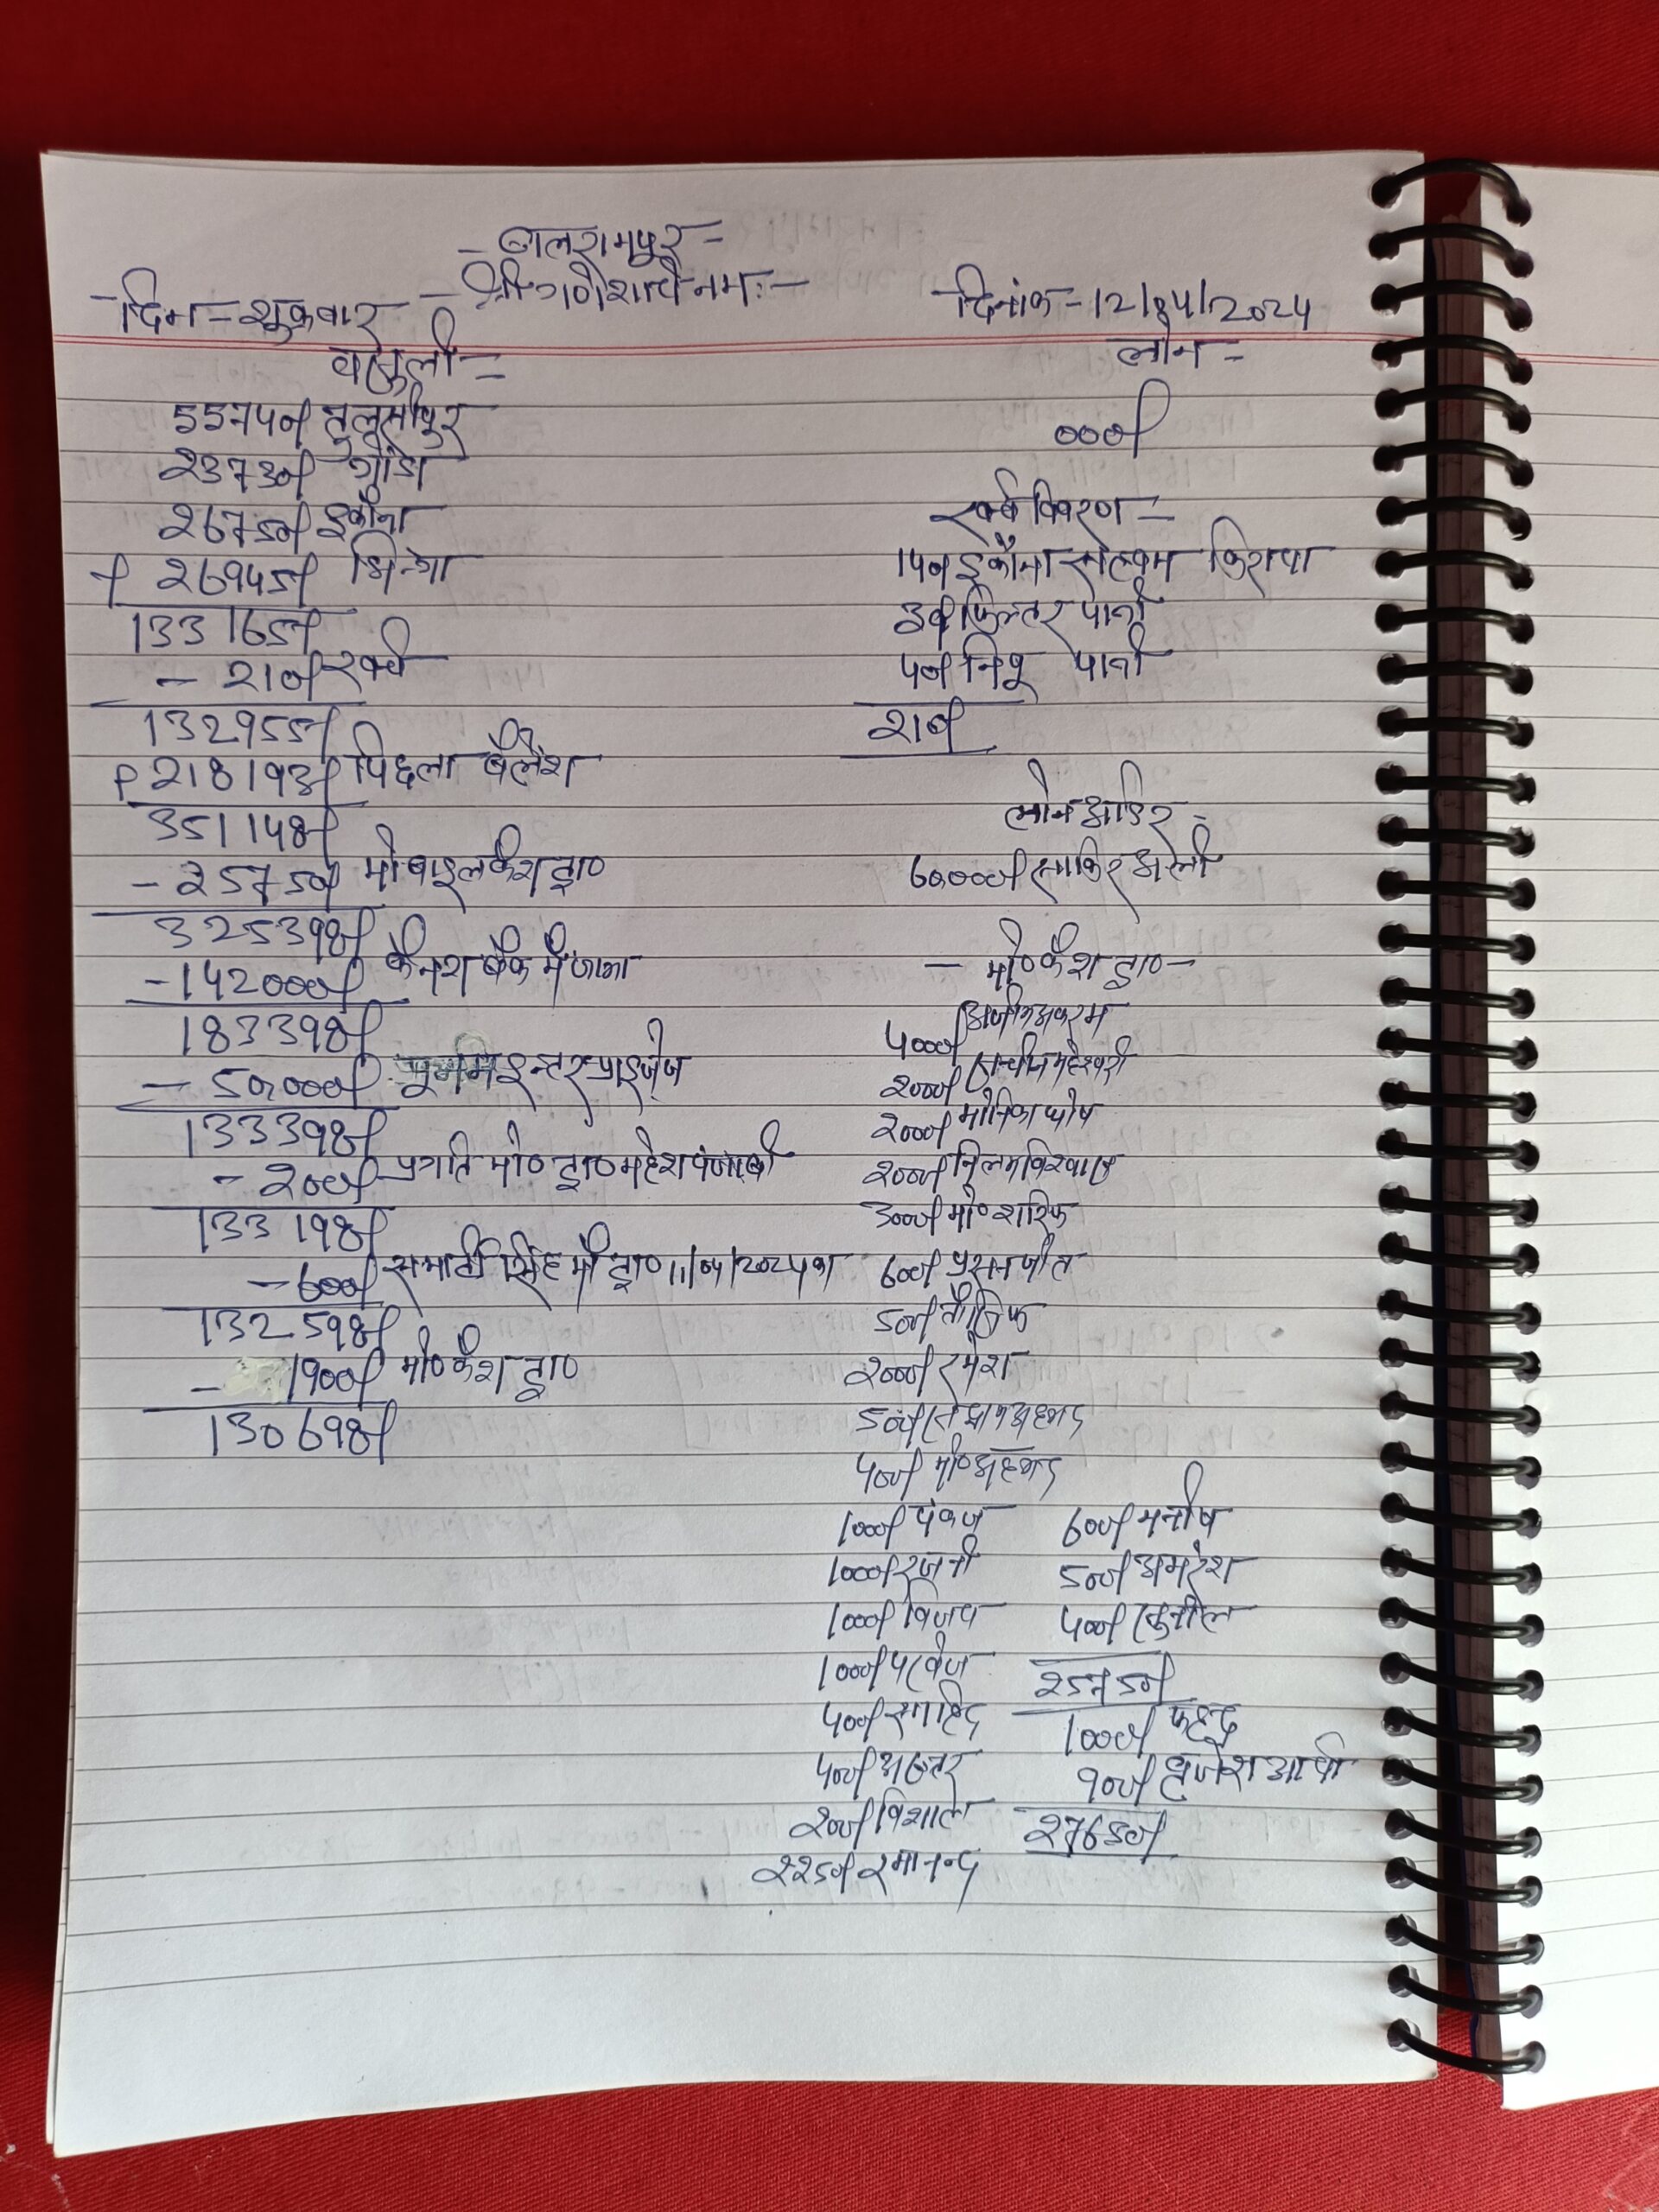 - बालरामपुर -
- श्री गणेशाये नमः -
- दिन - शुक्रवार
दिनांक - 12/04/2024
वसुली =
55740/ तुलसीपुर
23730/ गोंडा
26750/ इकौना
+ 26945/ भिन्गा
133165/
- 210/ खर्च
132955/
+ 218193/ पिछला बैलेंश
351148/
- 25750/ मोबाइल कैश द्वा०
325398/
- 142000/ केनरा बैंक में जामा
183398/
- 50,000/ इन्टरप्राइजेज
133398/
- 200/ प्रगति मो० द्वा० महेश पंजाबी
133198/
- 600/ सिंह मो द्वा० 11/04/2024 का
132598/
- 1900/ मो० कैश द्वा०
130698/
लोन =
000/
खर्च विवरण -
140/ इकौना किराया
30/ फिल्टर पानी
40/ पानी
210/
लोन आडिर =
60,000/ साकिर अली
- मो० कैश द्वा० -
4000/ अकरम
2000/ सचीन महेश्वरी
2000/ मोनिका घोष
2000/ निलम विश्वास
3000/ मो० शरिफ
600/ प्रसनजीत
500/ तौफिक
2000/ रमेश
500/ अहमद
400/ मो० अहमद
1000/ पंकज
1000/ रजनी
1000/ विजय
1000/ परवेज
400/ साहिद
400/ अख्तर
200/ विशाल
2250/ रमानन्द
600/ मनीष
500/ अमरेश
400/ सुनील
25750/
1000/ फहद
900/ बृजेश आर्या
27650/